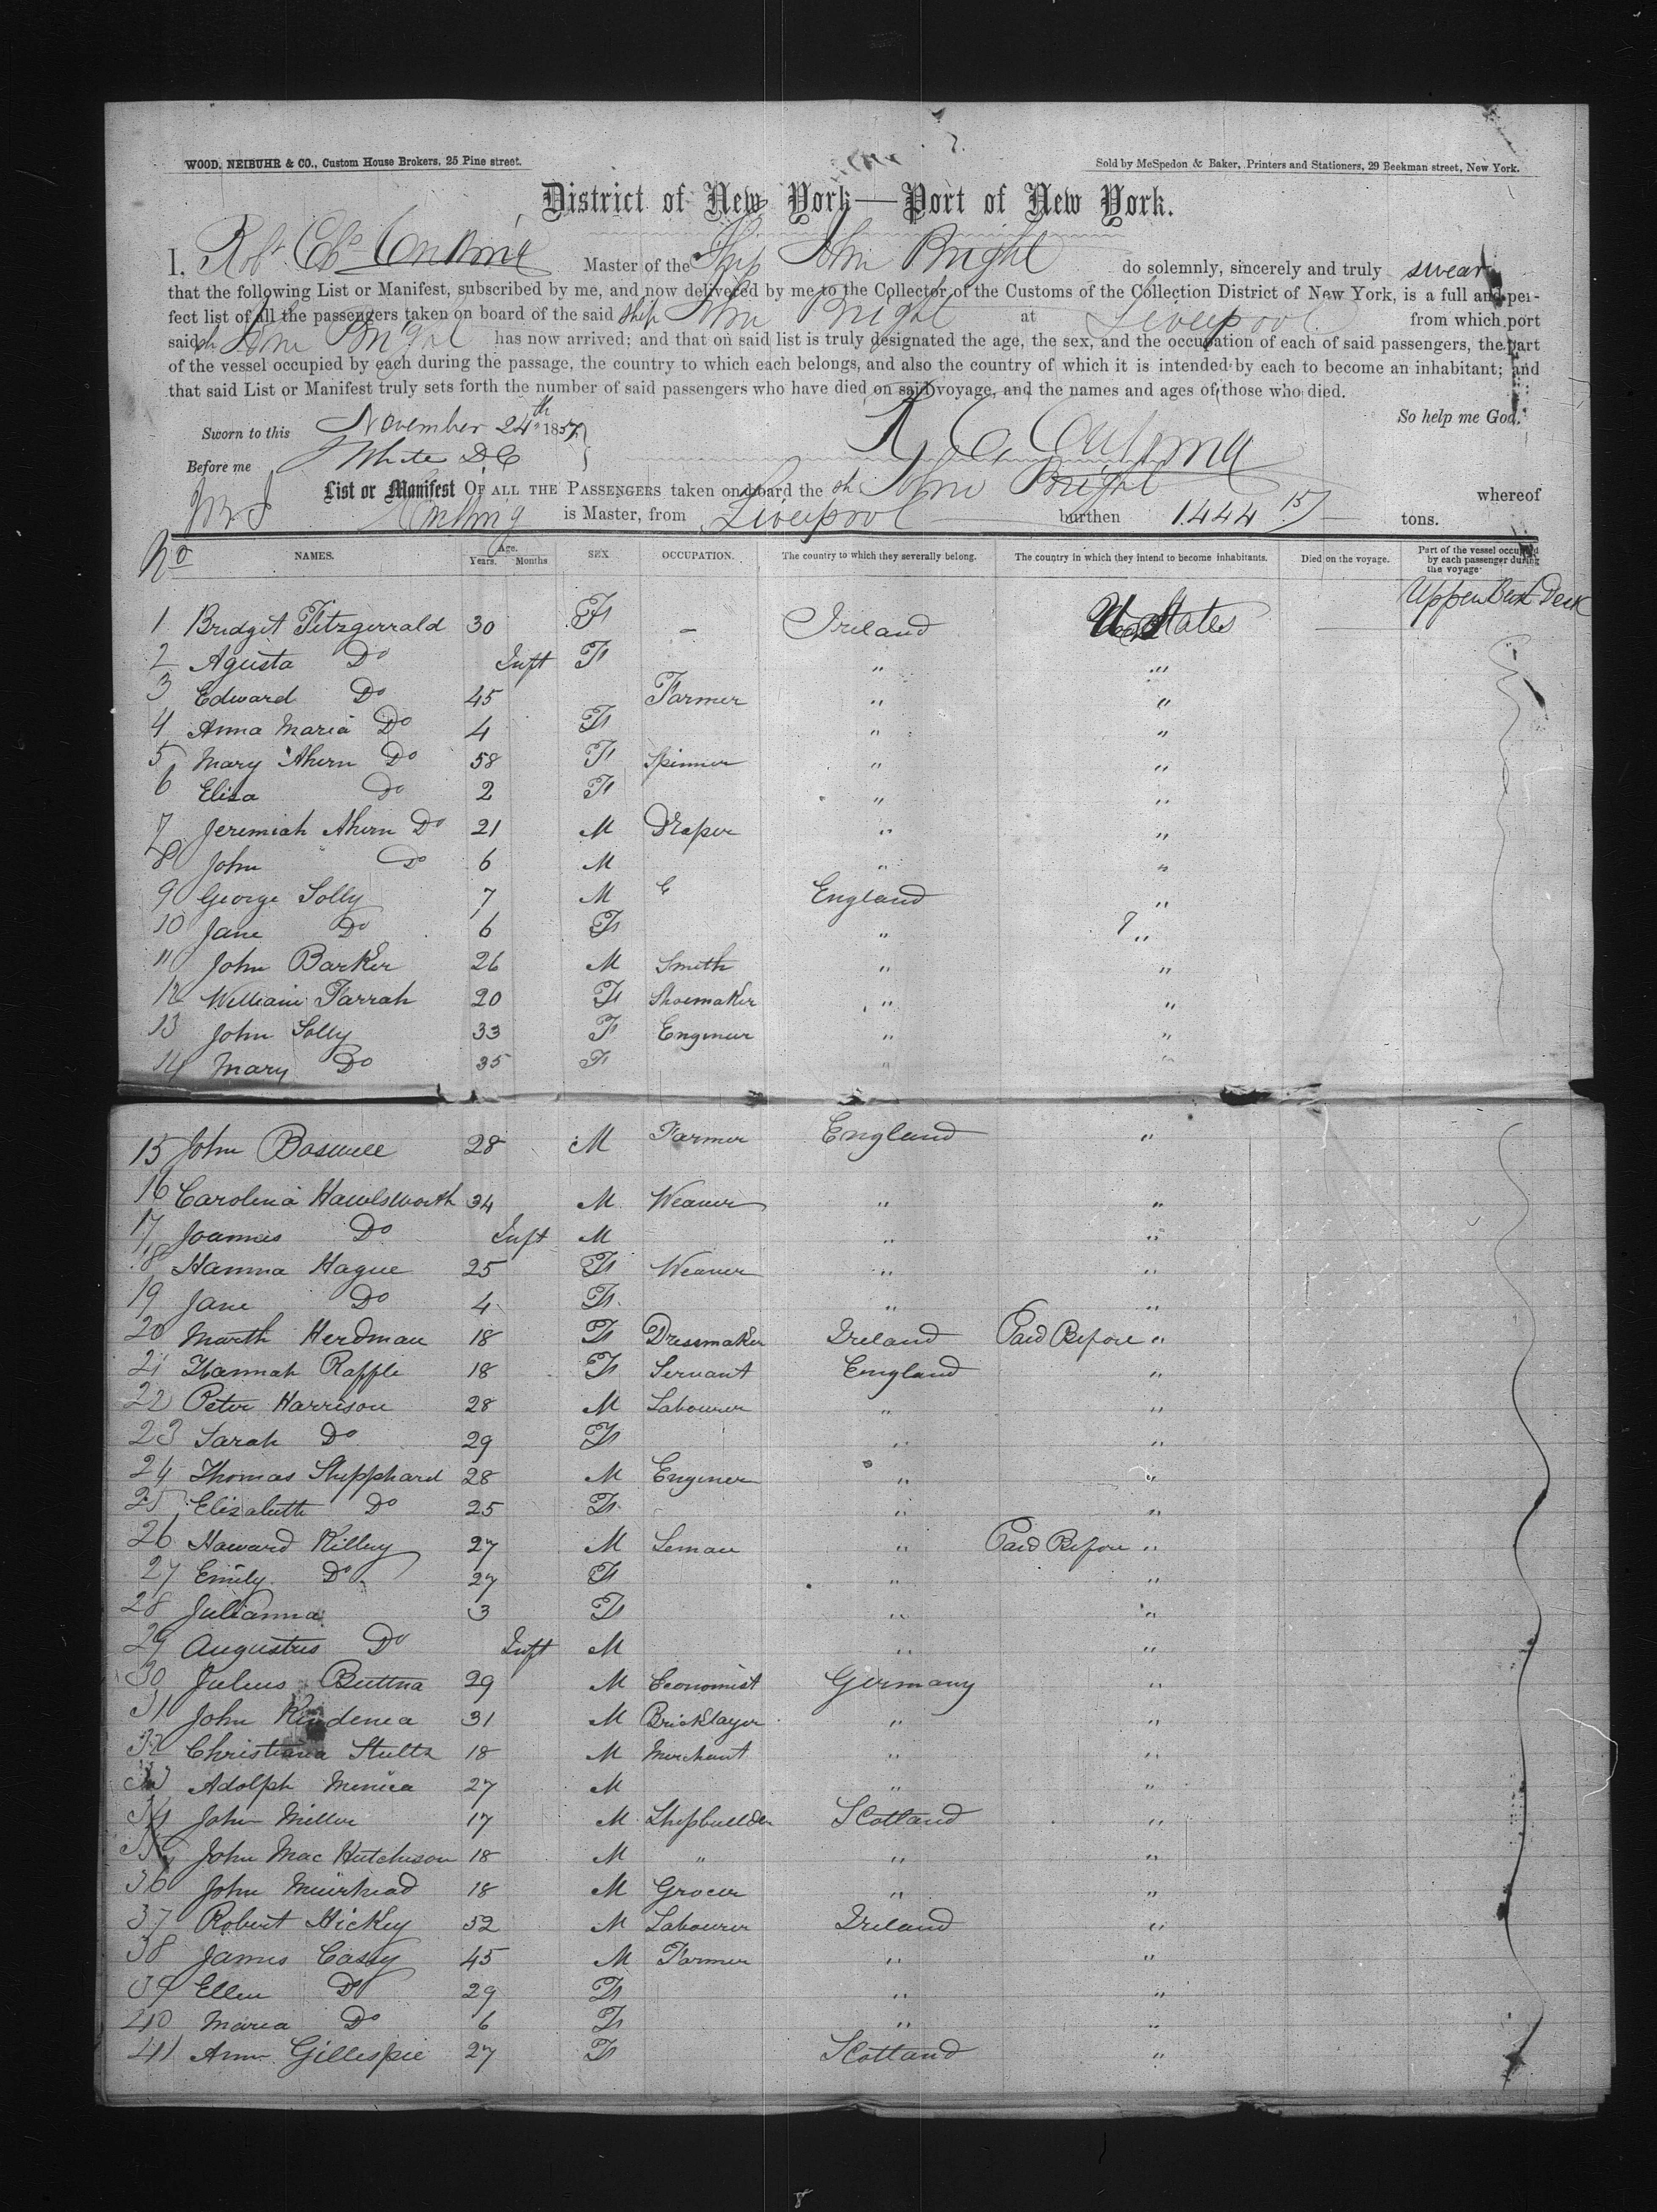 WOOD, NEIBUHR & CO., Custom House Brokers, 25 Pine street.
Sold by McSpedon & Baker, Printers and Stationers, 29 Beekman street, New York.
District of New York—Port of New York.
I, Robt Master of the Ship John Bright do solemnly, sincerely and truly swear
that the following List or Manifest, subscribed by me, and now delivered by me to the Collector of the Customs of the Collection District of New York, is a full and per-
fect list of all the passengers taken on board of the said Ship John Bright at Liverpool from which port
said sh John Bright has now arrived; and that on said list is truly designated the age, the sex, and the occupation of each of said passengers, the part
of the vessel occupied by each during the passage, the country to which each belongs, and also the country of which it is intended by each to become an inhabitant; and
that said List or Manifest truly sets forth the number of said passengers who have died on said voyage, and the names and ages of those who died.
So help me God.
Sworn to this November 24th 1857
Before me White D C
List or Manifest OF ALL THE PASSENGERS taken on board the sh John Bright whereof
is Master, from Liverpool burthen 1444 tons.
No NAMES. Age. Years. Months SEX OCCUPATION. The country to which they severally belong. The country in which they intend to become inhabitants. Died on the voyage. Part of the vessel occupied by each passenger during the voyage
1 Bridget Fitzgerrald 30 F - Ireland U States Upper Deck
2 Agusta Do Inft F " "
3 Edward Do 45 Farmer " "
4 Anna Maria Do 4 F " "
5 Mary Ahern Do 58 F Spinner " "
6 Eliza Do 2 F " "
7 Jeremiah Ahern Do 21 M Draper " "
8 John Do 6 M " "
9 George Solly 7 M England "
10 Jane Do 6 F " "
11 John Barker 26 M Smith " "
12 William Farrah 20 F Shoemaker " "
13 John Solly 33 F Engineer " "
14 Mary Do 35 F " "
15 John Boswell 28 M Farmer England "
16 Carolina Hawlsworth 34 M Weaver " "
17 Joannes Do Inft M " "
18 Hanna Hague 25 F Weaver " "
19 Jane Do 4 F " "
20 Marth Herdman 18 F Dressmaker Ireland Paid Before "
21 Hannah Raffle 18 F Servant England "
22 Peter Harrison 28 M Labourer " "
23 Sarah Do 29 F " "
24 Thomas Shepphard 28 M Enginer " "
25 Elizabeth Do 25 F " "
26 Howard Killey 27 M Seman " Paid Before "
27 Emily Do 27 F " "
28 Julianna 3 F " "
29 Augustus Do Inft M " "
30 Julius Buttna 29 M Economist Germany "
31 John 31 M Bricklayer " "
32 Christiana Stultz 18 M Merchant " "
33 Adolph 27 M " "
34 John Miller 17 M Shipbuilder Scotland "
35 John Mac Hutchison 18 M " " "
36 John Muirhead 18 M Grocer " "
37 Robert Hickey 52 M Labourer Ireland "
38 James Casey 45 M Farmer " "
39 Ellen Do 29 F " "
40 Maria Do 6 F " "
41 Ann Gillespie 27 F Scotland "
8